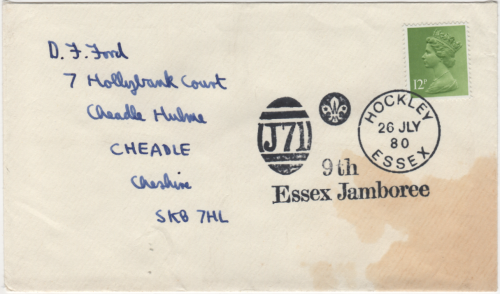 D. F. Ford
7 Hollybank Court
Cheadle Hulme
CHEADLE
Cheshire
SK8 7HL
12P
HOCKLEY
26 JLY
80
ESSEX
J71
9th
Essex Jamboree